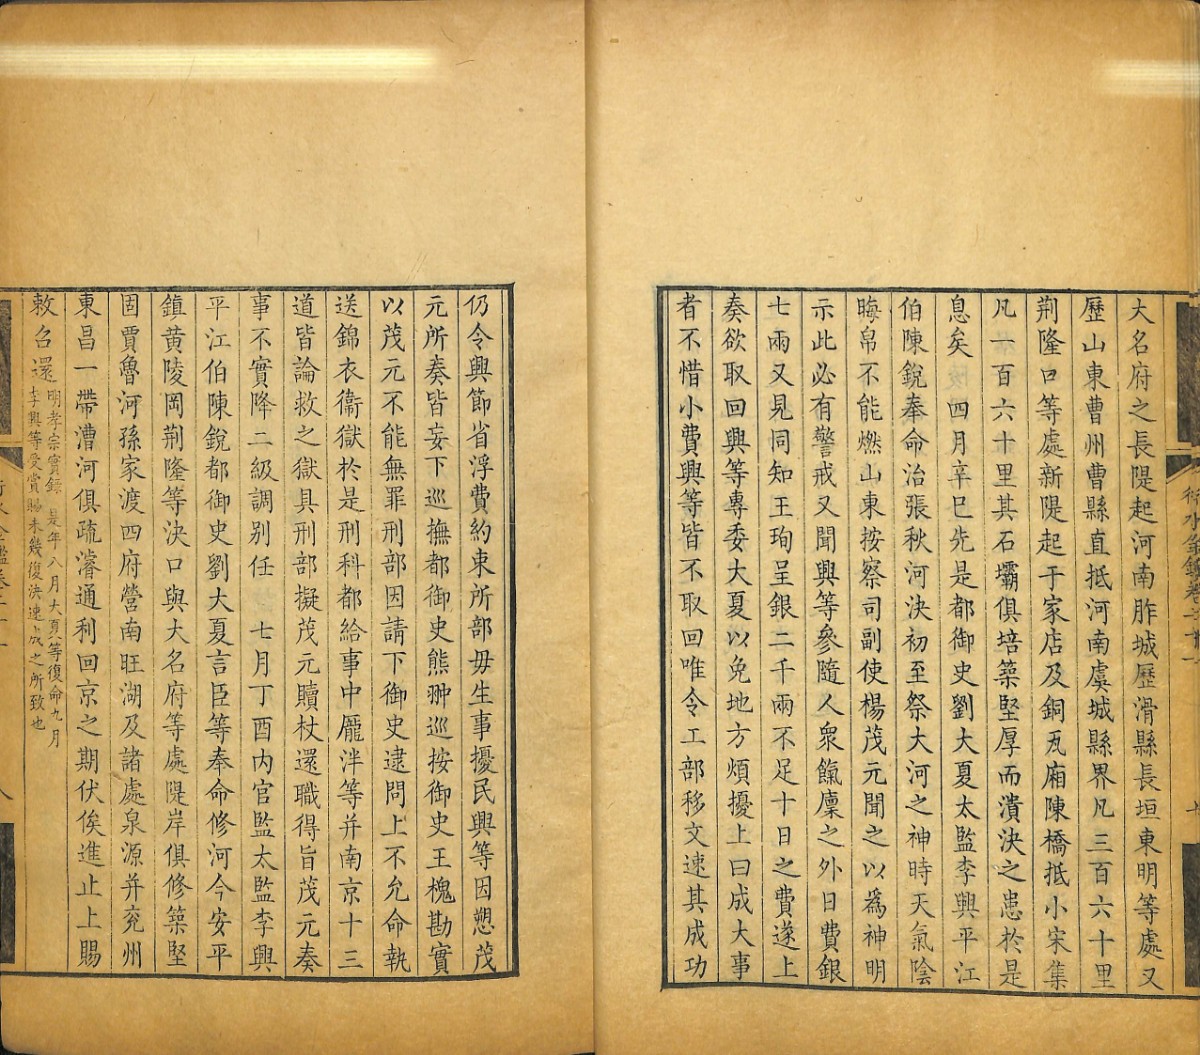 大名府之長隄起河南胙城歷滑縣長垣東明等處又
歷山東曹州曹縣直抵河南虞城縣界凡三百六十里
荆隆口等處新隄起于家店及銅瓦廂陳橋抵小宋集
凡一百六十里其石壩俱培築堅厚而潰決之患於是
息矣 四月辛巳先是都御史劉大夏太監李興平江
伯陳銳奉命治張秋河決初至祭大河之神時天氣陰
晦帛不能燃山東按察司副使楊茂元聞之以爲神明
示此必有警戒又聞興等參隨人衆餼廩之外日費銀
七兩又見同知王珣呈銀二千兩不足十日之費遂上
奏欲取回興等專委大夏以免地方煩擾上曰成大事
者不惜小費興等皆不取回唯令工部移文速其成功
仍令興節省浮費約束所部毋生事擾民興等因愬茂
元所奏皆妄下巡撫都御史熊翀巡按御史王槐勘實
以茂元不能無罪刑部因請下御史逮問上不允命執
送錦衣衞獄於是刑科都給事中龎泮等并南京十三
道皆論救之獄具刑部擬茂元贖杖還職得旨茂元奏
事不實降二級調别任 七月丁酉内官監太監李興
平江伯陳銳都御史劉大夏言臣等奉命修河今安平
鎮黄陵岡荆隆等決口與大名府等處隄岸俱修築堅
固賈魯河孫家渡四府營南旺湖及諸處泉源并兖州
東昌一帶漕河俱疏濬通利回京之期伏俟進止上賜
敕召還
明孝宗實錄 是年八月大夏等復命九月
李興等受賞賜未幾復決速成之所致也
行水金鑑卷